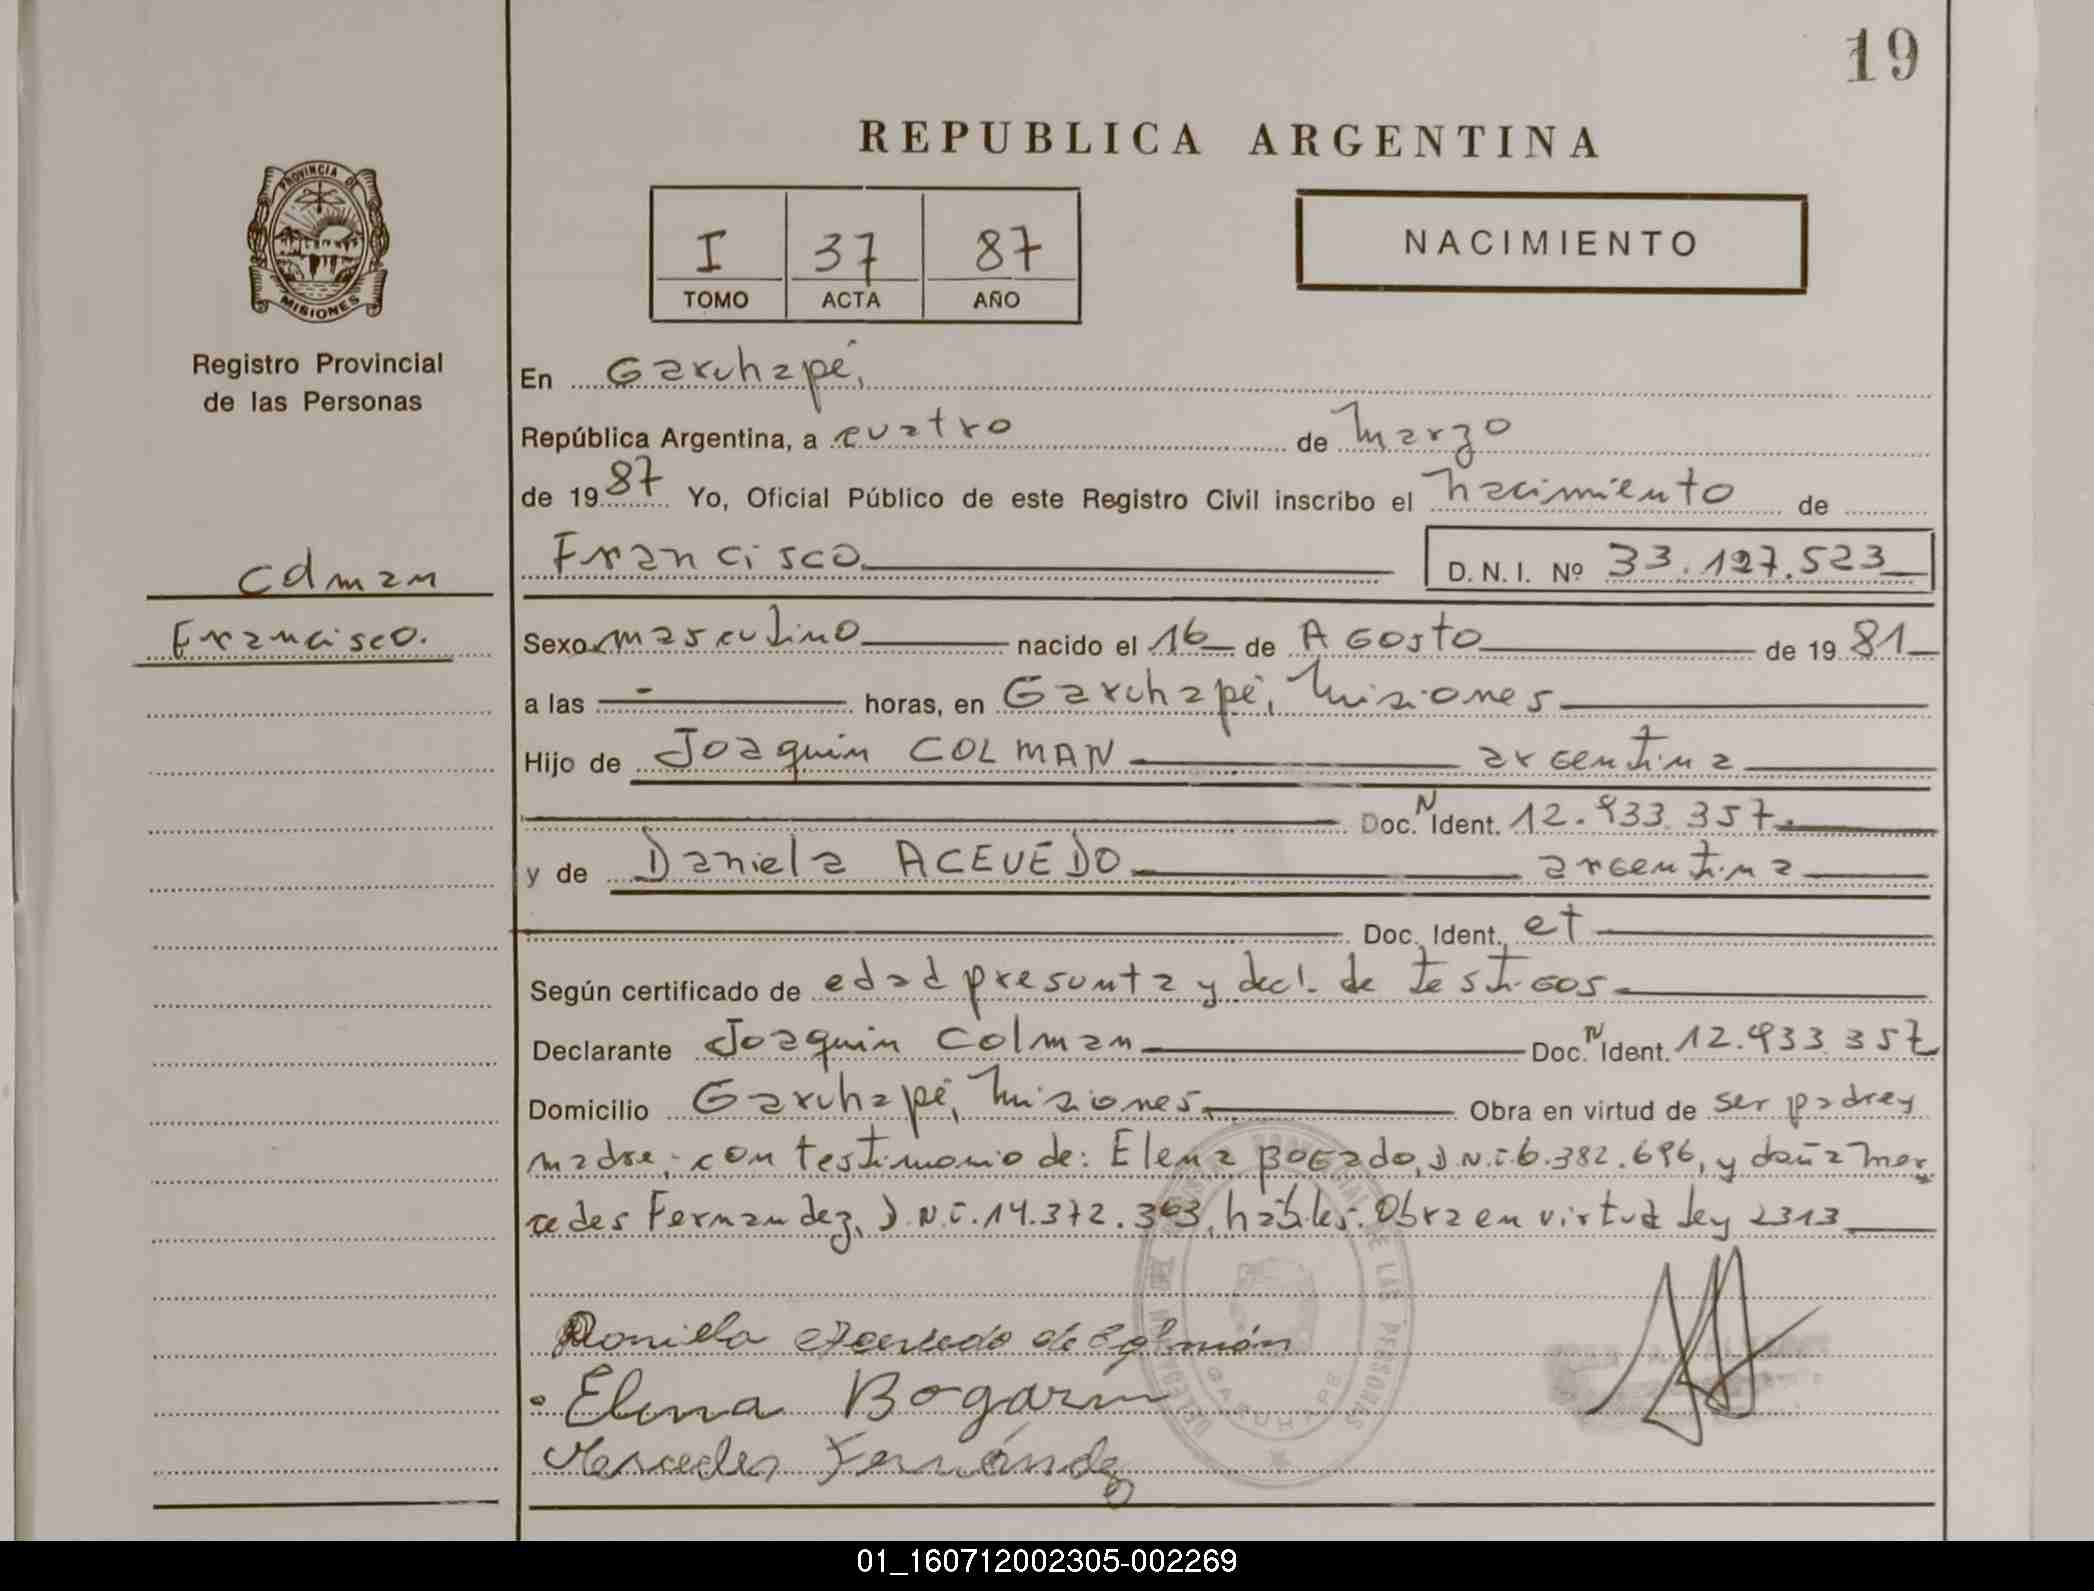 19
REPUBLICA ARGENTINA
PROVINCIA DE
MISIONES
I 37 87
TOMO ACTA AÑO
NACIMIENTO
Registro Provincial
de las Personas
Colman
Francisco.
En Garuhapé,
República Argentina, a cuatro de Marzo
de 1987 Yo, Oficial Público de este Registro Civil inscribo el nacimiento de
Francisco D. N. I. Nº 33.127.523
Sexo masculino nacido el 16 de AGosto de 1981
a las - horas, en Garuhapé, Misiones
Hijo de Joaquin COLMAN argentina
Doc. N Ident. 12.933.357.
y de Daniela ACEVEDO argentina
Doc. Ident. et
Según certificado de edad presunta y decl. de testigos
Declarante Joaquin Colman Doc. N Ident. 12.933.357
Domicilio Garuhapé, Misiones Obra en virtud de ser padre y
madre; con testimonio de: Elena BOGado, D.N.I. 6.382.696, y doña Mer
cedes Fernandez, D.N.I. 14.372.363, hábiles. Obra en virtud ley 2313
Daniela Acevedo de Colmán
Elena Bogarin
Mercedes Fernández
DE LAS PERSONAS
GARUHAPE
01_160712002305-002269